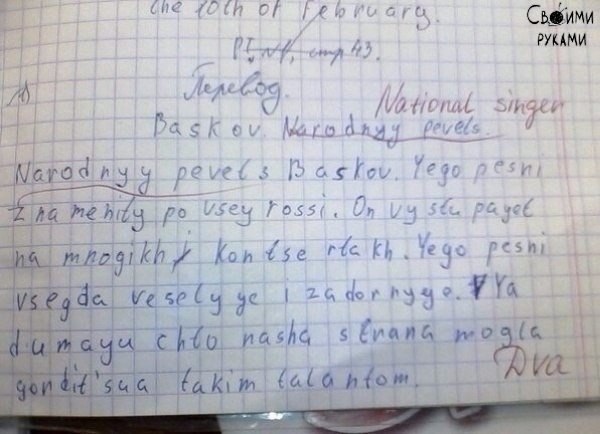 the 10th of February.
СВОИМИ
РУКАМИ
P1, N1, стр 43.
Перевод.
National singer
Baskov. Narodnyy pevets.
Narodnyy pevets Baskov. Yego pesni
znamenity po vsey rossi. On vystupayet
na mnogikh kontsertakh. Yego pesni
vsegda veselyye i zadornyye. Ya
dumayu chto nasha strana mogla
gordit'sua takim talantom.
Dva